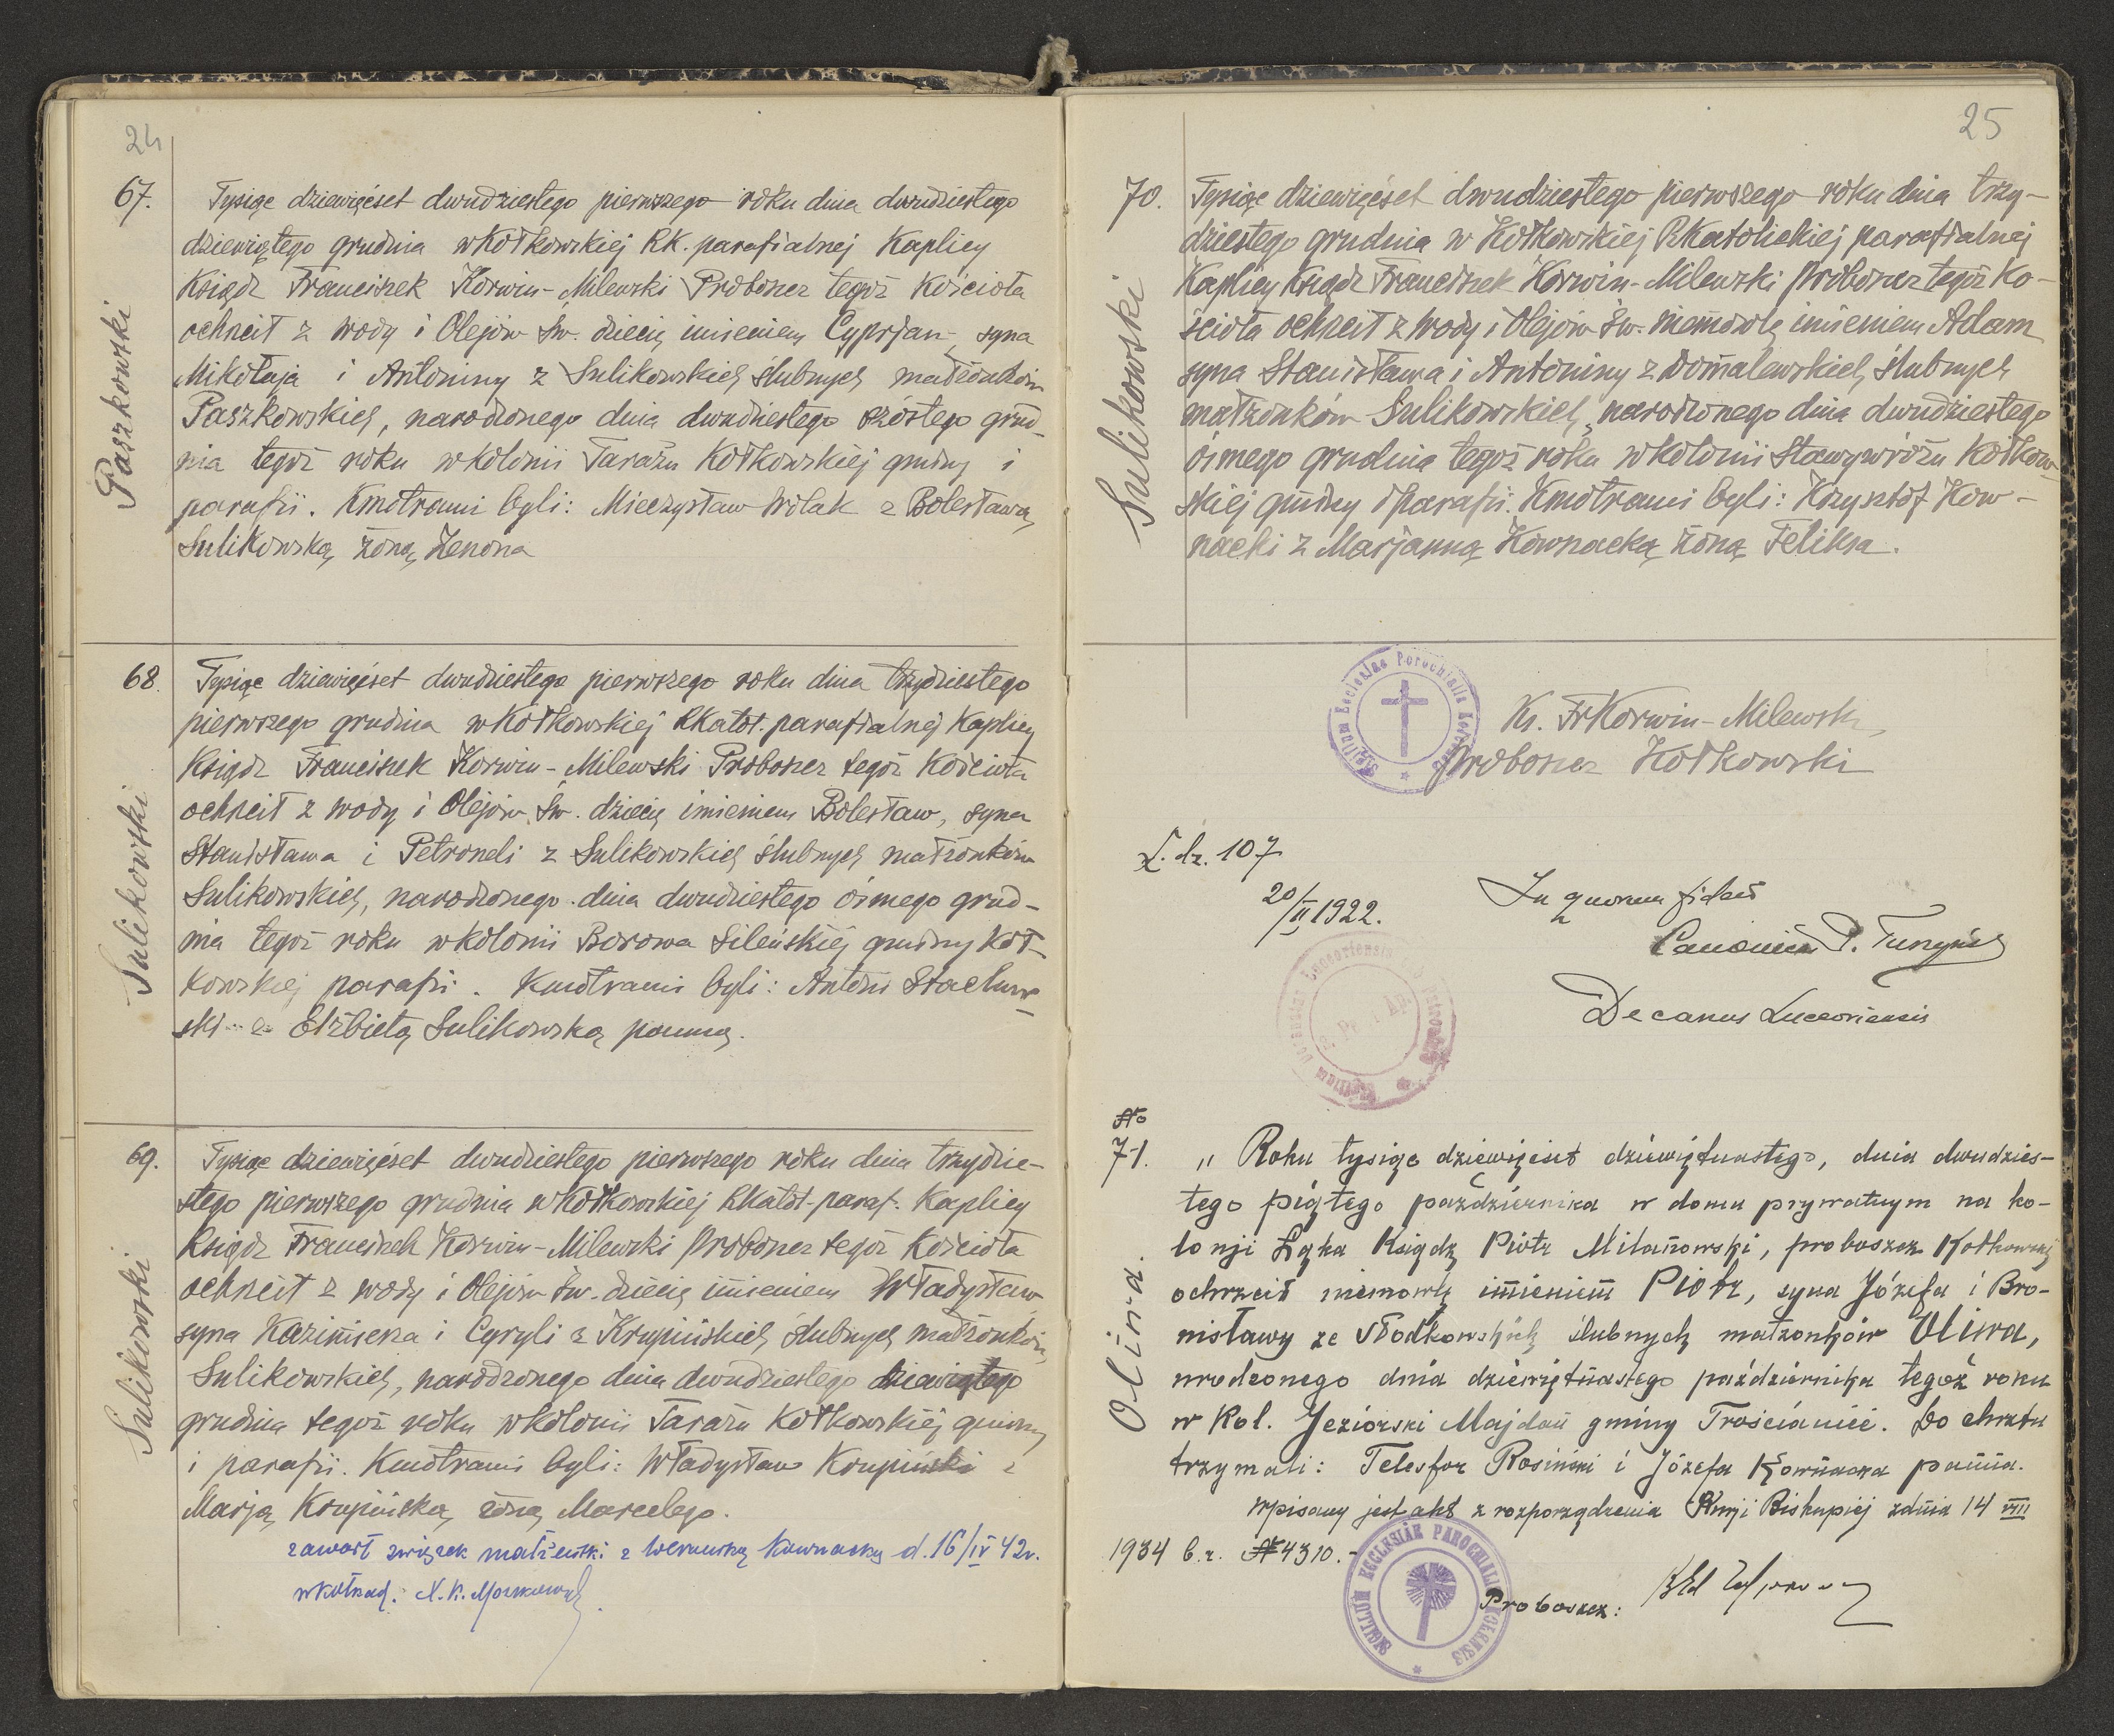 24
67.
Paszkowski
Tysiąc dziewięćset dwudziestego pierwszego roku dnia dwudziestego
dziewiątego grudnia w Kołkowskiej RK. parafialnej Kaplicy
Ksiądz Franciszek Korwin-Milewski Proboszcz tegoż Kościoła
ochrcił z wody i Olejów Św. dziecię imieniem Cyprjan, syna
Mikołaja i Antoniny z Sulikowskich ślubnych małżonków
Paszkowskich, narodzonego dnia dwudziestego szóstego grud-
nia tegoż roku w kolonii Tarażu Kołkowskiej gminy i
parafii. Kmotrami byli: Mieczysław Wolak z Bolesławą
Sulikowską żoną Zenona
68.
Sulikowski
Tysiąc dziewięćset dwudziestego pierwszego roku dnia trzydziestego
pierwszego grudnia w Kołkowskiej RKatol. parafialnej Kaplicy
Ksiądz Franciszek Korwin-Milewski Proboszcz tegoż Kościoła
ochrcił z wody i Olejów Św. dziecię imieniem Bolesław, syna
Stanisława i Petroneli z Sulikowskich ślubnych małżonków
Sulikowskich, narodzonego dnia dwudziestego ósmego grud-
nia tegoż roku w kolonii Borowa Sileńskiej gminy Koł-
kowskiej parafii. Kmotrami byli: Antoni Stachur-
ski z Elżbietą Sulikowską panną.
69.
Sulikowski
Tysiąc dziewięćset dwudziestego pierwszego roku dnia trzydzie-
stego pierwszego grudnia w Kołkowskiej RKatol. paraf. Kaplicy
Ksiądz Franciszek Korwin-Milewski Proboszcz tegoż Kościoła
ochrcił z wody i Olejów Św. dziecię imieniem Władysław
syna Kazimierza i Cyryli z Krupińskich ślubnych małżonków
Sulikowskich, narodzonego dnia dwudziestego dziewiątego
grudnia tegoż roku w kolonii Tarażu Kołkowskiej gminy
i parafii. Kmotrami byli: Władysław Krupiński z
Marją Krupińską żoną Marcelego.
zawarł związek małżeński z Weroniką Kownacką d. 16/IV 42r.
w Kołkach.
25
70.
Sulikowski
Tysiąc dziewięćset dwudziestego pierwszego roku dnia trzy-
dziestego grudnia w Kołkowskiej RKatolickiej parafialnej
Kaplicy Ksiądz Franciszek Korwin-Milewski Proboszcz tegoż Ko-
ścioła ochrcił z wody i Olejów Św. niemowlę imieniem Adam
syna Stanisława i Antoniny z Domalewskich ślubnych
małżonków Sulikowskich, narodzonego dnia dwudziestego
ósmego grudnia tegoż roku w kolonii Stawywróżu Kołkow-
skiej gminy i parafii. Kmotrami byli: Krzysztof Kow-
nacki z Marjanną Kownacką żoną Feliksa.
Ks. Fr Korwin-Milewski
Proboszcz Kołkowski
L. dz. 107
20/II 1922.
In quorum fidem
Canonicus P.
Decanus Luceoriensis
No
71.
Oliwa.
„ Roku tysiąc dziewięćset dziewiętnastego, dnia dwudzies-
tego piątego października w domu prywatnym na ko-
lonji Łąka Ksiądz Piotr Milanowski, proboszcz Kołkowski
ochrzcił niemowlę imieniem Piotr, syna Józefa i Bro-
nisławy ze Słodkowskich ślubnych małżonków Oliwa,
urodzonego dnia dziewiętnastego października tegoż roku
w Kol. Jeziorski Majdan gminy Trościaniec. Do chrztu
trzymali: Telesfor Rosiński i Józefa Kownacka panna.
Wpisany jest akt z rozporządzenia Kurji Biskupiej z dnia 14 VIII
1934 b.r. № 4310.-
Proboszcz:
SIGILLUM ECCLESIAE PAROCHIALIS KOŁKENSIS